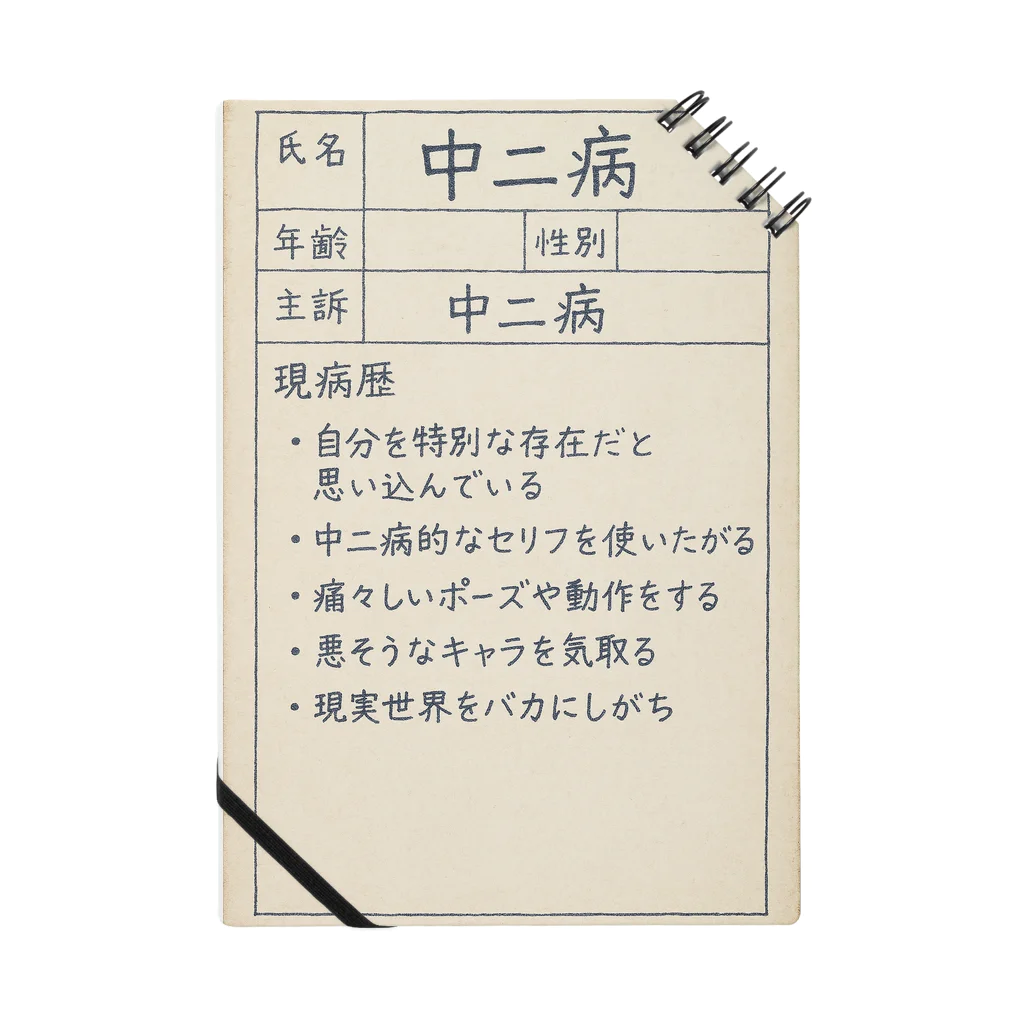 氏名 中二病
年齢 性別
主訴 中二病
現病歴
・自分を特別な存在だと
思い込んでいる
・中二病的なセリフを使いたがる
・痛々しいポーズや動作をする
・悪そうなキャラを気取る
・現実世界をバカにしがち